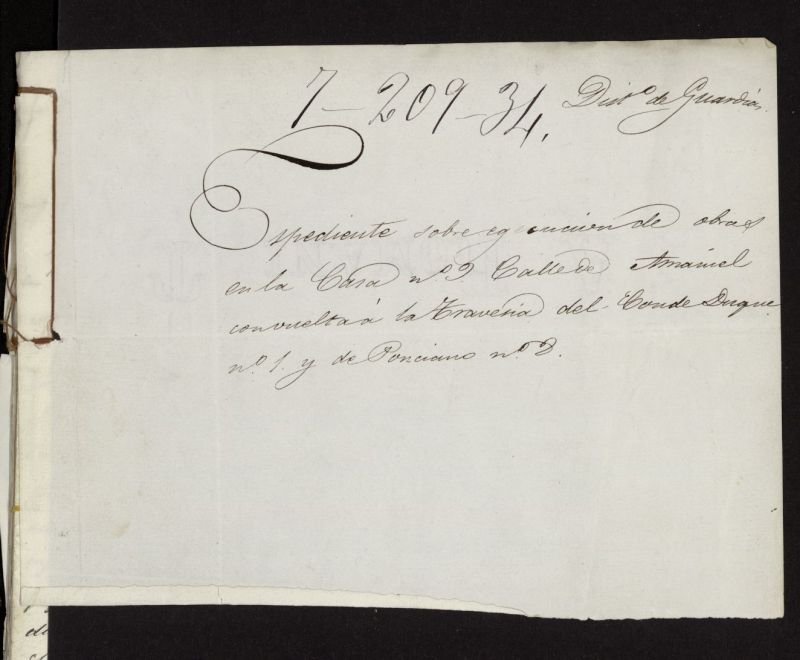 7-209-34, Dist.º de Guardias.
Expediente sobre egecucion de obras
en la Casa nº 9 Calle de Amaniel
con vuelta á la Travesia del Conde Duque
nº 1. y de Ponciano nº 2.